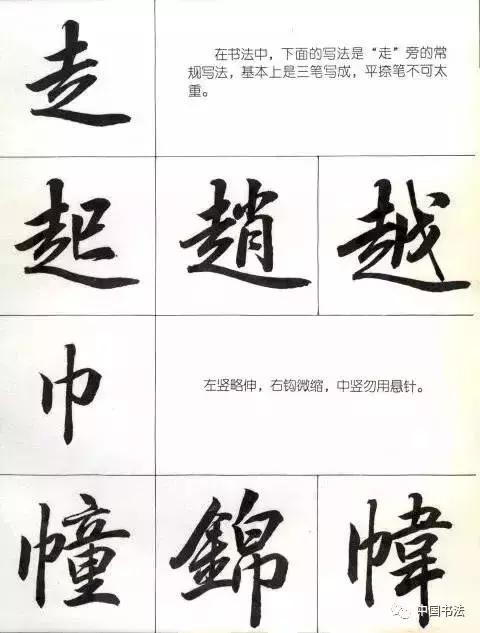 走
在书法中，下面的写法是“走”旁的常
规写法，基本上是三笔写成，平捺笔不可太
重。
起 趙 越
巾
左竖略伸，右钩微缩，中竖勿用悬针。
幢 錦 幃
中国书法